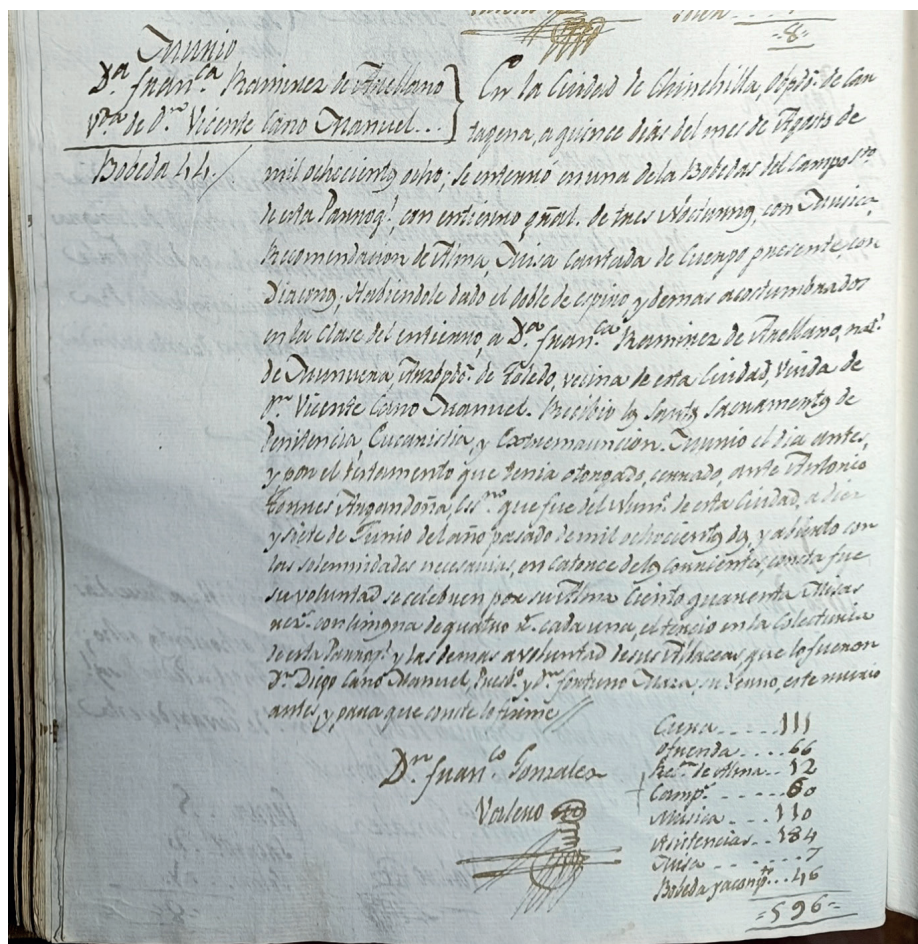 =8=
Murio
D.ª Fran.ca Ramirez de Arellano
V.da de D.n Vicente Cano Manuel...
Bobeda 44.
En la Ciudad de Chinchilla, Obpdo. de Car
tagena, a quince dias del mes de Agosto de
mil ochocientos ocho; se enterro en una de la Bobedas del Campo S.to
de esta Parroq.l, con entierro gñal. de tres Nocturnos, con Musica,
Recomendacion de Alma, Misa cantada de Cuerpo presente, con
Diaconos; Habiendole dado el doble de espiro y demas acostumbrados
en la Clase del entierro, a D.ª Fran.ca Ramirez de Arellano, nat.l
de Arzbpdo. de Toledo, vecina de esta Ciudad, Viuda de
D.n Vicente Cano Manuel. Recibio los Santos Sacramentos de
Penitencia, Eucaristia, y Extremauncion. Murio el dia antes,
y por el testamento que tenia otorgado, cerrado, ante Antonio
Torres Argandoña, Ess.no que fue del Num.o de esta Ciudad, a diez
y siete de Junio del año pasado de mil ochocientos dos, y abierto con
las solemnidades necesarias, en catorce de los corrientes, consta fue
su voluntad se celebren por su Alma Ciento quarenta Misas
rez.s con limosna de quatro r.s cada una, el tercio en la Colecturia
de esta Parroq.l y las demas a voluntad de sus Albaceas, que lo fueron
D.n Diego Cano Manuel, Presb.o y D.n Fortuno Meza, su Yerno, este murio
antes, y para que conste lo firme
D.n Fran.co Gonzalez
Valeno
Cura.....111
Ofrenda....66
Re.on de Alma..12
Camp.o......60
Musica....110
Asistencias...184
Misa.......7
Bobeda y acomp.to...46
=596=